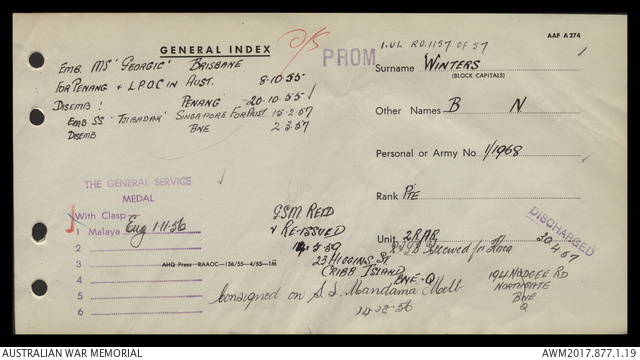 AAF A 274
GENERAL INDEX
O/S
PROM
1.VL RO.1157 OF 57
EMB. MS 'GEORGIC' BRISBANE
FOR PENANG + L.P.O.C IN AUST. 8.10.55
DISEMB: PENANG 20.10.55
EMB SS 'TJIBADAK' SINGAPORE FOR AUST. 15.2.57
DISEMB BNE 2.3.57
Surname WINTERS
(BLOCK CAPITALS)
Other Names B N
Personal or Army No. 1/1968
Rank PTE
Unit 2RAR
DISCHARGED
20.4.57
THE GENERAL SERVICE
MEDAL
With Clasp
1 Malaya Elig 1.11.56
2
3
4
5
6
AHQ Press RAAOC—136/55—4/55—1M
GSM RETD
& REISSUED
14.5.59
23 HIGGINS ST.
CRIBB ISLAND
BNE-Q
194 NUDGEE RD
NORTHGATE
BNE
Q
Consigned on S.S. Mandama Melb
14.12.56
AUSTRALIAN WAR MEMORIAL
AWM2017.877.1.19